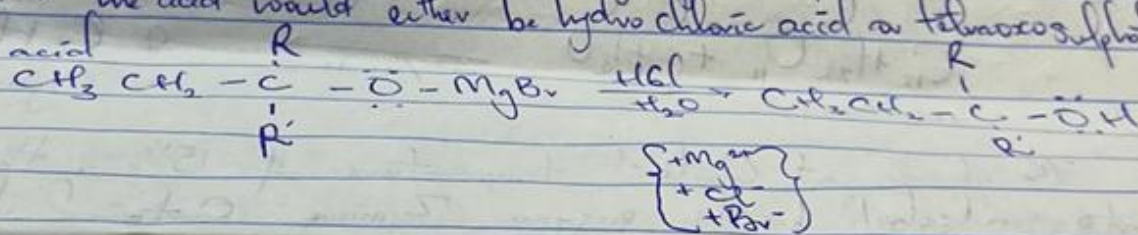 the acid would either be hydrochloric acid or tetraoxosulpho
acid
R R
CH₃ CH₂ - C - Ö - MgBr HCl/H₂O → CH₃CH₂ - C - ÖH
R' R'
{+Mg²⁺
+ Cl⁻
+Br⁻}